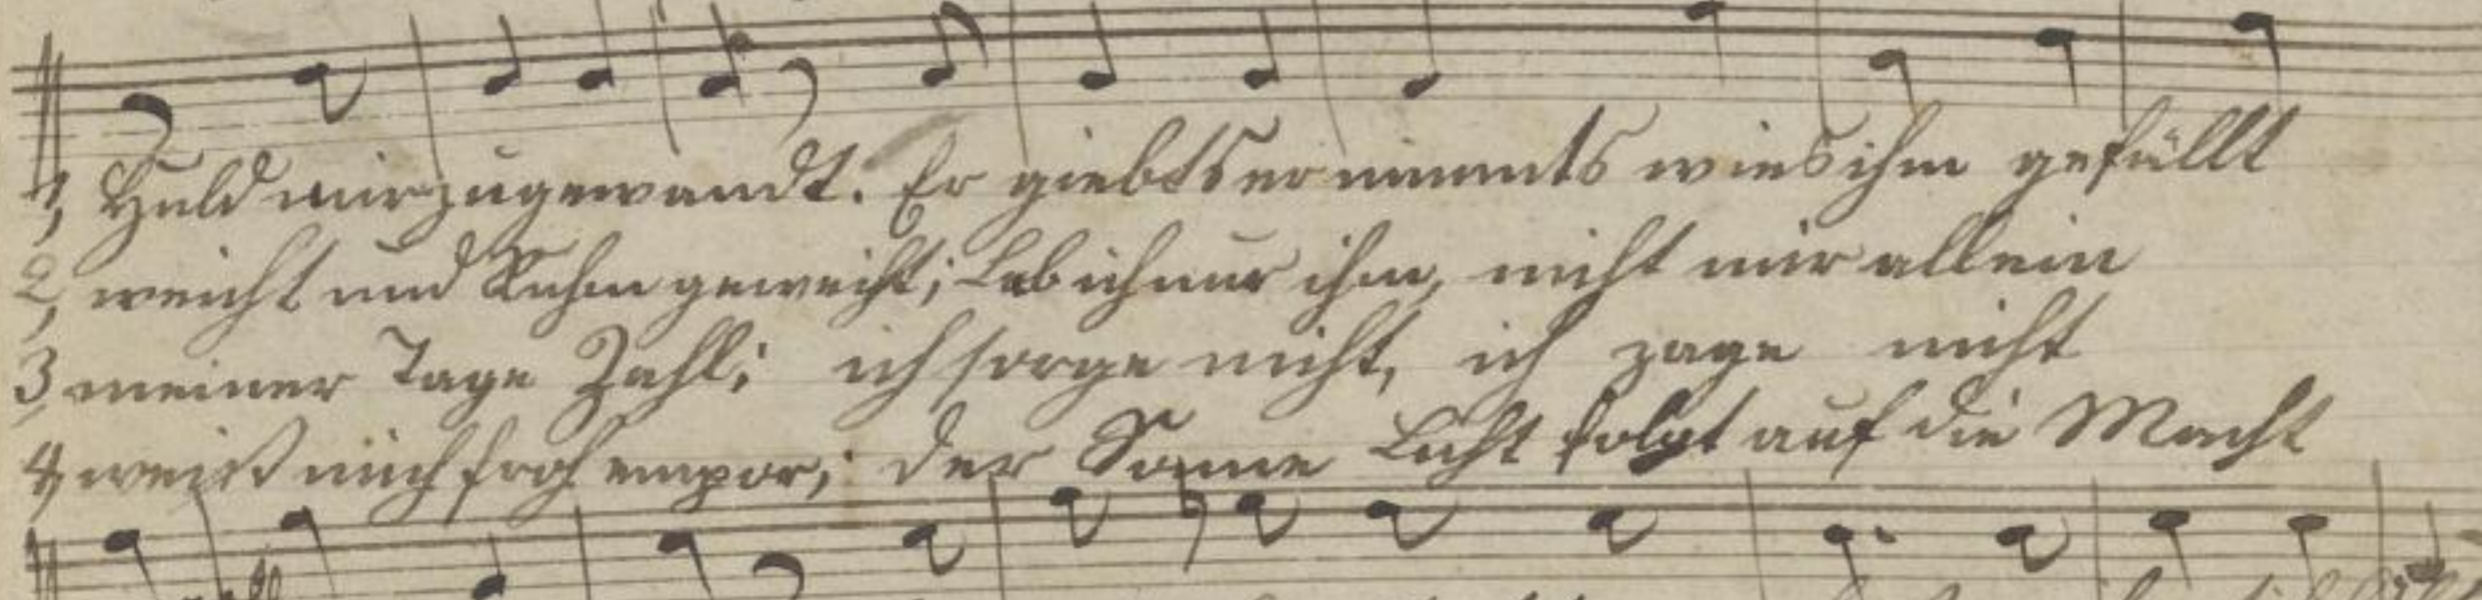 1, Huld mir zugewandt. Er giebts er nimmts wies ihm gefällt
2, weicht und Ruhm geweiht; Leb ich nur ihm, nicht mir allein
3, meiner Tage Zahl; ich sorge nicht, ich zage nicht
4, weiß mich froh empor; der Sonne Licht folgt auf die Nacht